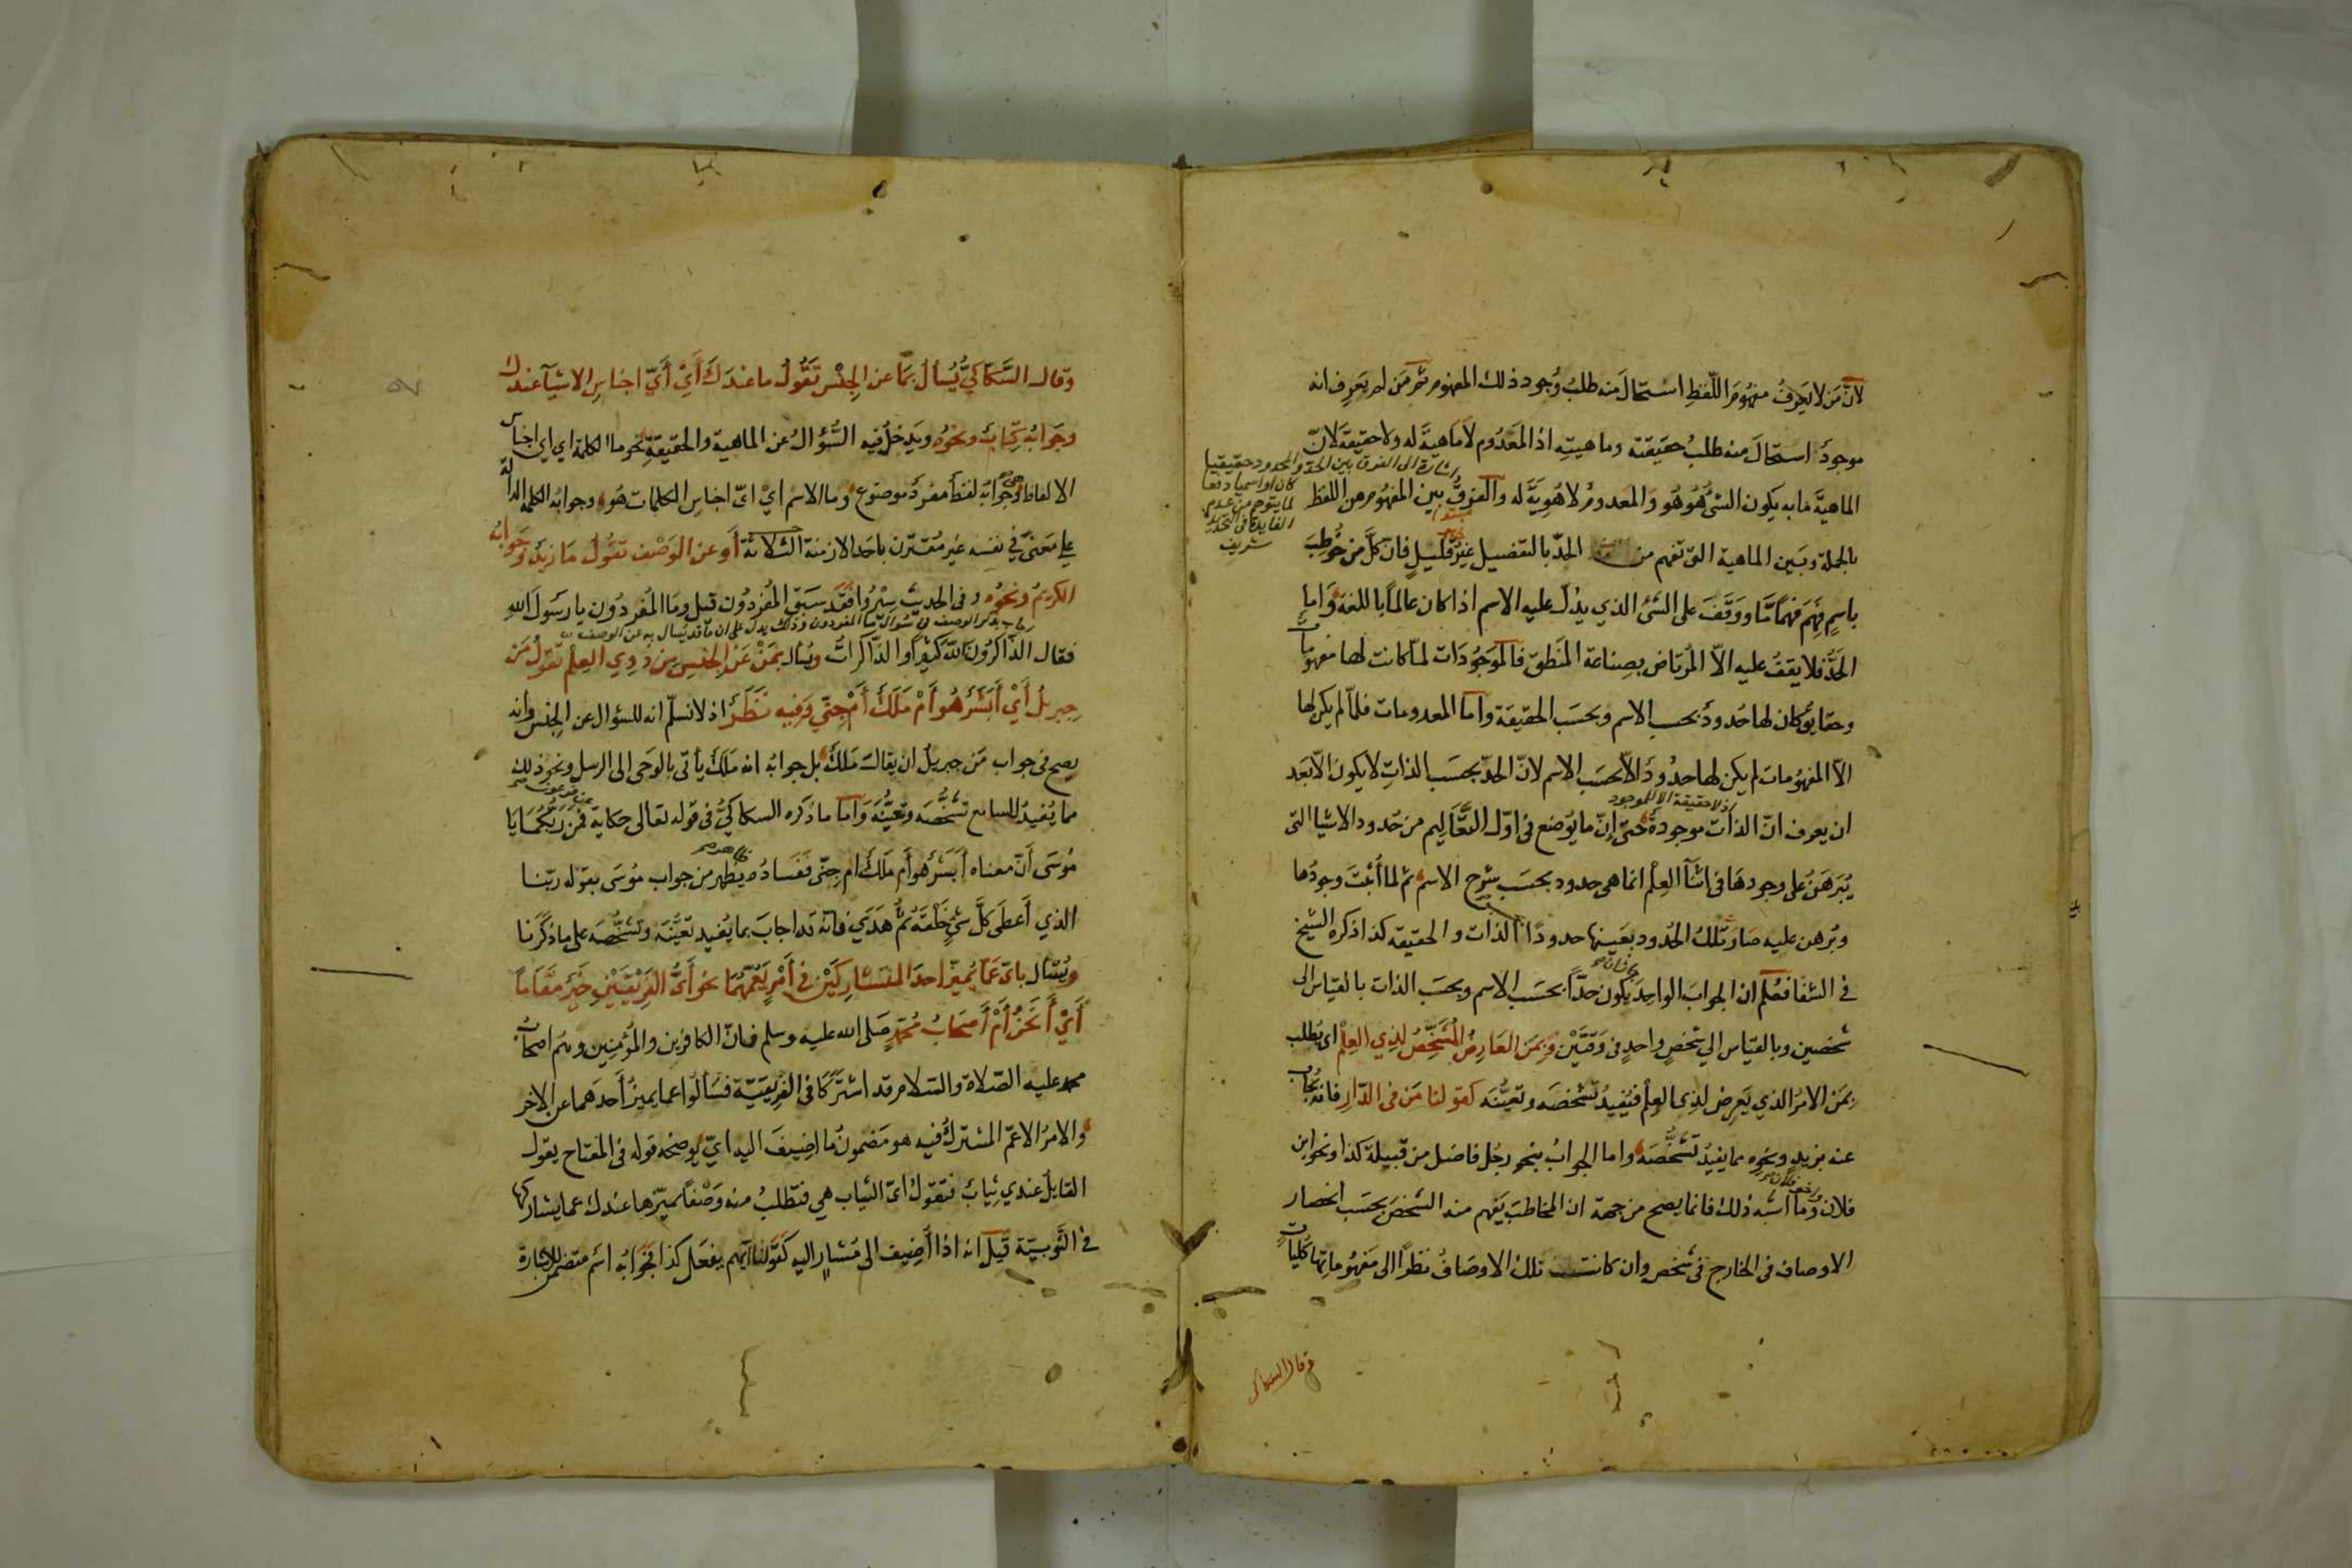 لانّ مَن لا يَعرِفُ مفهُومَ اللّفظِ استحالَ منه طلبُ وُجود ذلك المفهوم ثم مَن لم يَعرِف انه
موجودٌ استحالَ منه طلبُ حقيقته وماهيته اذ المعَدُوم لا ماهيةَ له ولا حقيقة لانّ
الماهيَّة ما به يكون الشئُ هُوَ هُو والمعدومُ لا هُويَّة له والفرقُ بين المفهوم من اللفظ
بالجملة وبَين الماهية التى تفهم من الحدّ بالتفضيل غيرُ قليلٍ فانّ كلّ من خُوطِبَ
باسمٍ فَهِمَ فهمًا مّا ووقَفَ على الشئ الذي يدُلّ عليه الاسم اذا كان عالماً باللغة وَاما
الحَدُّ فلا يقفُ عليه الاّ المُرتاض بصِناعة المنَطق فالموَجُودَات لمّا كانت لها مفهومات
وحقايقُ كان لها حُدودٌ بحسب الاسم وبحسَب الحقيقة واما المعدومات فلمّا لم يكن لها
الاّ المفهُومات لم يكن لها حدُودٌ الاّ بحسَب الاسم لانّ الحدّ بحسَب الذاتِ لا يكون الاّ بَعد
ان يعرف انّ الذات موجودةٌ حتى إنّ ما يُوضع فى اوّل التعَّاليم من حُدود الاشيا التى
يُبَرهَنُ على وجودهَا فى اثنآ العِلْم انما هى حدود بحسَب شرح الاسم ثم لما أُثبتَ وجودُها
وبُرهن عليه صَارَ تلكُ الحُدود بعَينها حدودًا الذات والحقيقة كذا ذكره الشيخ
فى الشفا فعُلم ان الجوابَ الواحِدَ يكون حدّاً بحسَب الاسم وبحسَب الذات بالقياس الى
شخصين وبالقياس الي شخصٍ واحدٍ فى وَقتَيْن وبمَن العَارِضُ المُشَخِّصُ لذِي العِلْم اى يطلب
بمَن الامرُ الذي يَعرِض لذِى العِلْم فيُفيدُ تشخصَه وتعيُّنَه كقولنا مَن فى الدّار فانه يُجاب
عنه بزيدٍ ونحوِه مما يفيدُ تشخُّصَه واما الجوابُ بنحو رجُل فاضل من قبيلة كذا ونحو ابن
فلان وما اشبه ذلك فانما يصح من جهة ان المخاطبَ يَفهم منه الشخصَ بحسَب انحصار
الاوصاف فى الخارج فى شخص وان كانت تلك الاوصَافُ نظرًا الى مَفهُوماتها كُلياتٍ
اشارة الى الفرق بين الحد والمحدود حقيقيا
كان او اسميا دفعا
لما يتوهم من عدم
الفايدة فى التحديد
شريف
اذ لا حقيقة الا للموجود
وقال السكاكى
وقال السَّكاكيُّ يُسأل بمَا عن الجِنْسِ تقُولُ ما عندَكَ أيْ أيّ اجناسِ الاشيَآ عندك
وجَوابهُ كِتابٌ ونحوُه ويَدخلُ فيه السُّؤالُ عن الماهية والحقيقةِ نحو ما الكلمة اى اى اجناس
الالفاظ وجوابه لفظٌ مفردٌ موضوع وما الاسم ايْ اىّ اجناسِ الكلمات هُوَ وجوابهُ الكلمة الدالّة
على معَنىً فى نفسه غير مُقتَرن باحَد الازمنة الثلاثة أو عن الوَصْف تقُولُ ما زيدٌ وجَوابُهُ
الكريمُ ونحوُه وفى الحديث سِيْرُوا فقَد سبَق المُفرِّدُون قيل وما المُفرّدُون يا رسُولَ الله
فقال الذّاكرُون اللّهَ كثيرًا والذّاكراتُ ويُسأل بمَنْ عن الجنسِ من ذوِي العِلْم تقولُ مَن
جبريلُ أيْ أبَشَرٌ هُوَ أم مَلَكٌ أم جِنّي وفيه نَظرٌ اذ لا نسلّم انه للسؤال عن الجِنس وانه
يصح فى جواب مَن جبريلُ ان يقال مَلكٌ بل جوابُه انه مَلكٌ يأتى بالوَحى الى الرسل ونحو ذلك
مما يُفيدُ للسامع تشخُّصَه وتعيُّنَه وَاما ما ذكره السكاكيُّ فى قوله تعالى حكاية فمَن ربُّكُما يَا
مُوسَى أنّ معناه أبَشَرٌ هو أم ملَكٌ ام جِنّى ففسادُه يَظهر من جواب مُوسَى بقوله ربّنا
الذي أعطَى كلَّ شئٍ خَلقَه ثُمَّ هَدَي فانّه قد اجابَ بما يُفيد تعيُّنَه وتشخُّصَه على ما ذكَرنا
ويُسْأل باىّ عَمّا يُميزُ احَدَ المتشارِكَيْن فى أمْرٍ يَعُمُّهُما نحو أىُّ الفَرِيقَيْنِ خيرٌ مَّقَامًا
أيْ أنحنُ أم أصحَابُ مُحمّدٍ صلى الله عليه وسلم فانّ الكافرين والمُؤمنين وهُم اصحَابُ
محمد عليه الصّلاة والسّلام قد اشتَركَا فى الفرِيقيّة فسَألُوا عما يميزُ أحدَهما عن الاخر
والامرُ الاعمّ المشتركُ فيه هو مَضمونُ ما اضِيفَ اليه ايّ يُوضحه قوله فى المفتاح يقول
القايل عندي ثيابٌ فتقولُ اىّ الثياب هي فتطلبُ منه وَصْفًا يميّزها عندك عما يشاركها
فى الثَّوبيّة قيل انه اذا أضِيف الى مُشارٍ اليه كقَولنا ايّهم يفعَل كذا فجَوابُه اسم متضمن للاشارة
يذكر الوصف فى سؤال ما المفردون وذلك يدل على ان ما قد يُسال به عن الوصف